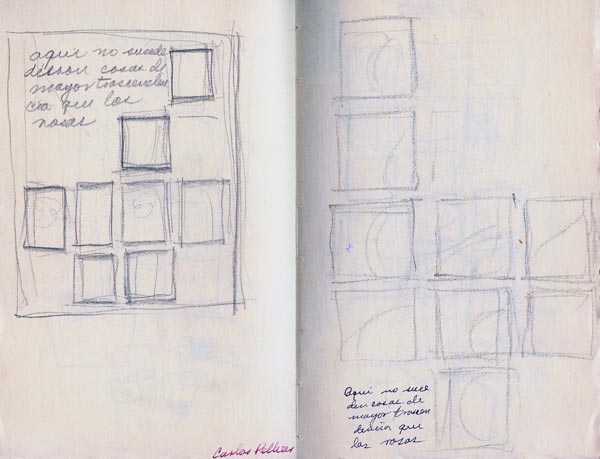 aquí no sucede
cosas de
mayor trascenden
cia que las
rosas
Carlos Pellicer
Aqui no suce
den cosas de
mayor trascen
dencia que
las rosas